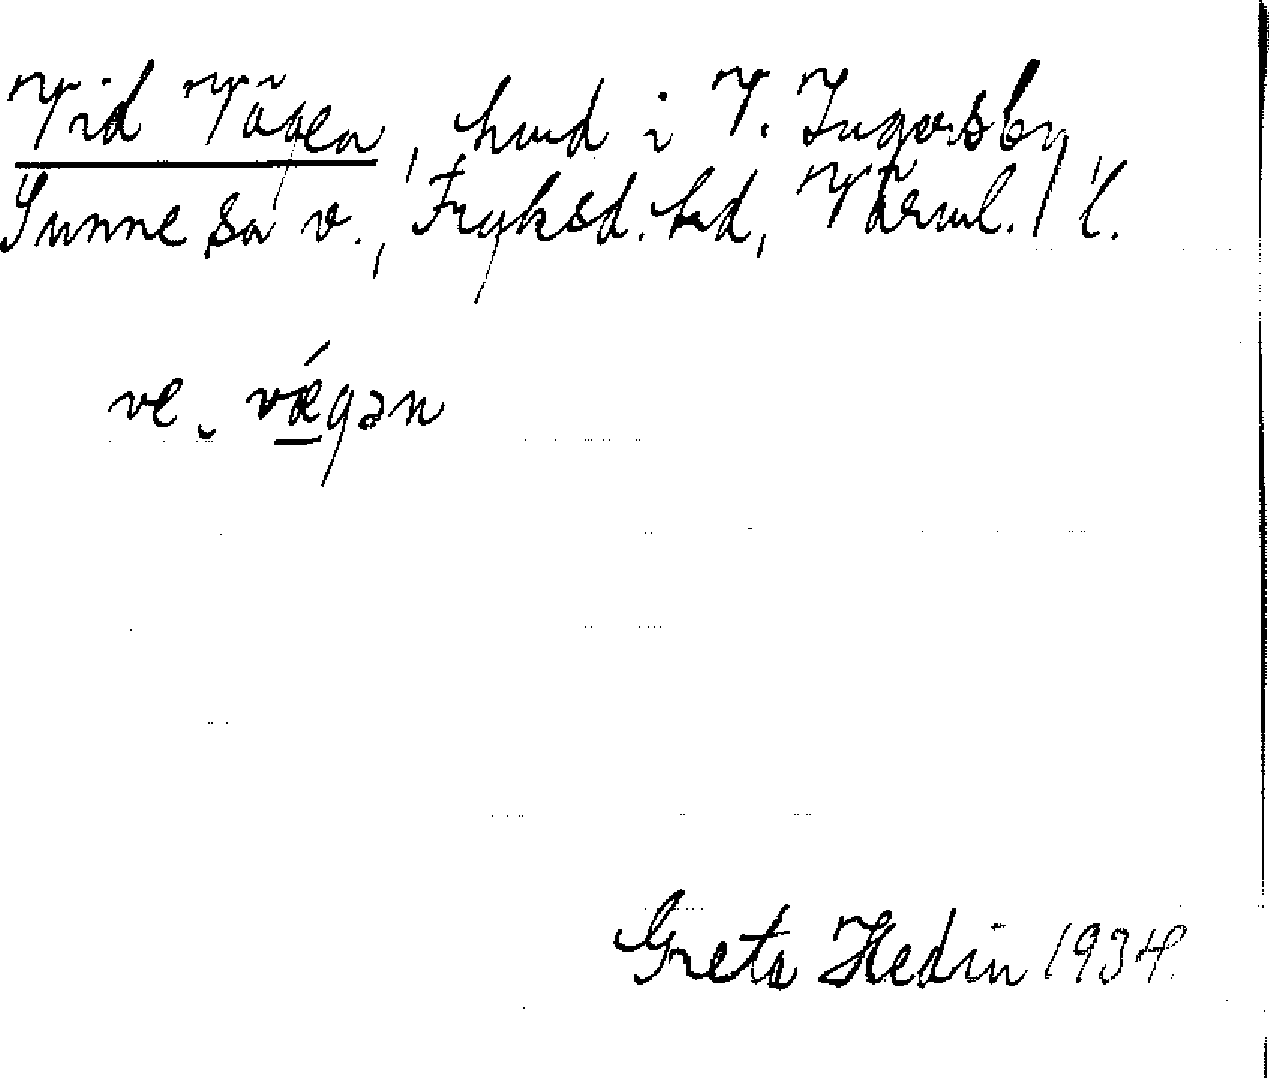 Vid Vägen, hmd i V. Ingersby,
Sunne sn v., Fryksd. hd, Värml. l.
ve ̮ vǽgən
Greta Hedin 1934.